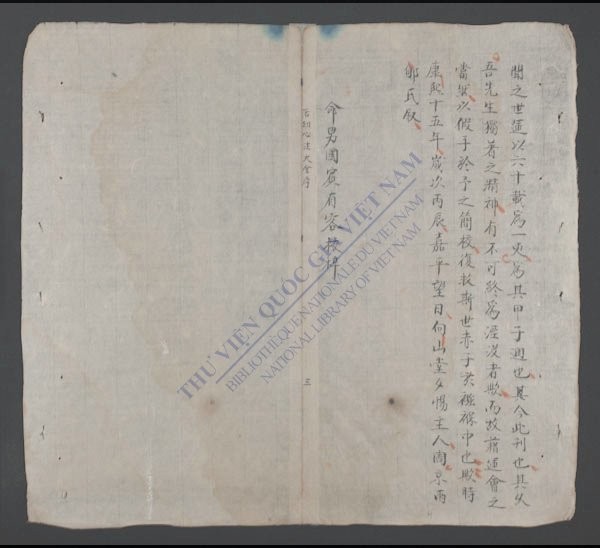 聞之世運以六十載爲一更爲其甲子週也其今此刊也具
吾先生獨著之精神有不可終爲湮沒者歟而故藉運會之
當其以假手於予之簡校復救斯世赤子於襁褓中也歟時
康熙十五年歲次丙辰嘉平望日向山堂夕惕主人周京雨
郇氏叙
命男國賓有容校
活幼心法大全序
三
THƯ VIỆN QUỐC GIA VIỆT NAM
BIBLIOTHÈQUE NATIONALE DU VIETNAM
NATIONAL LIBRARY OF VIETNAM